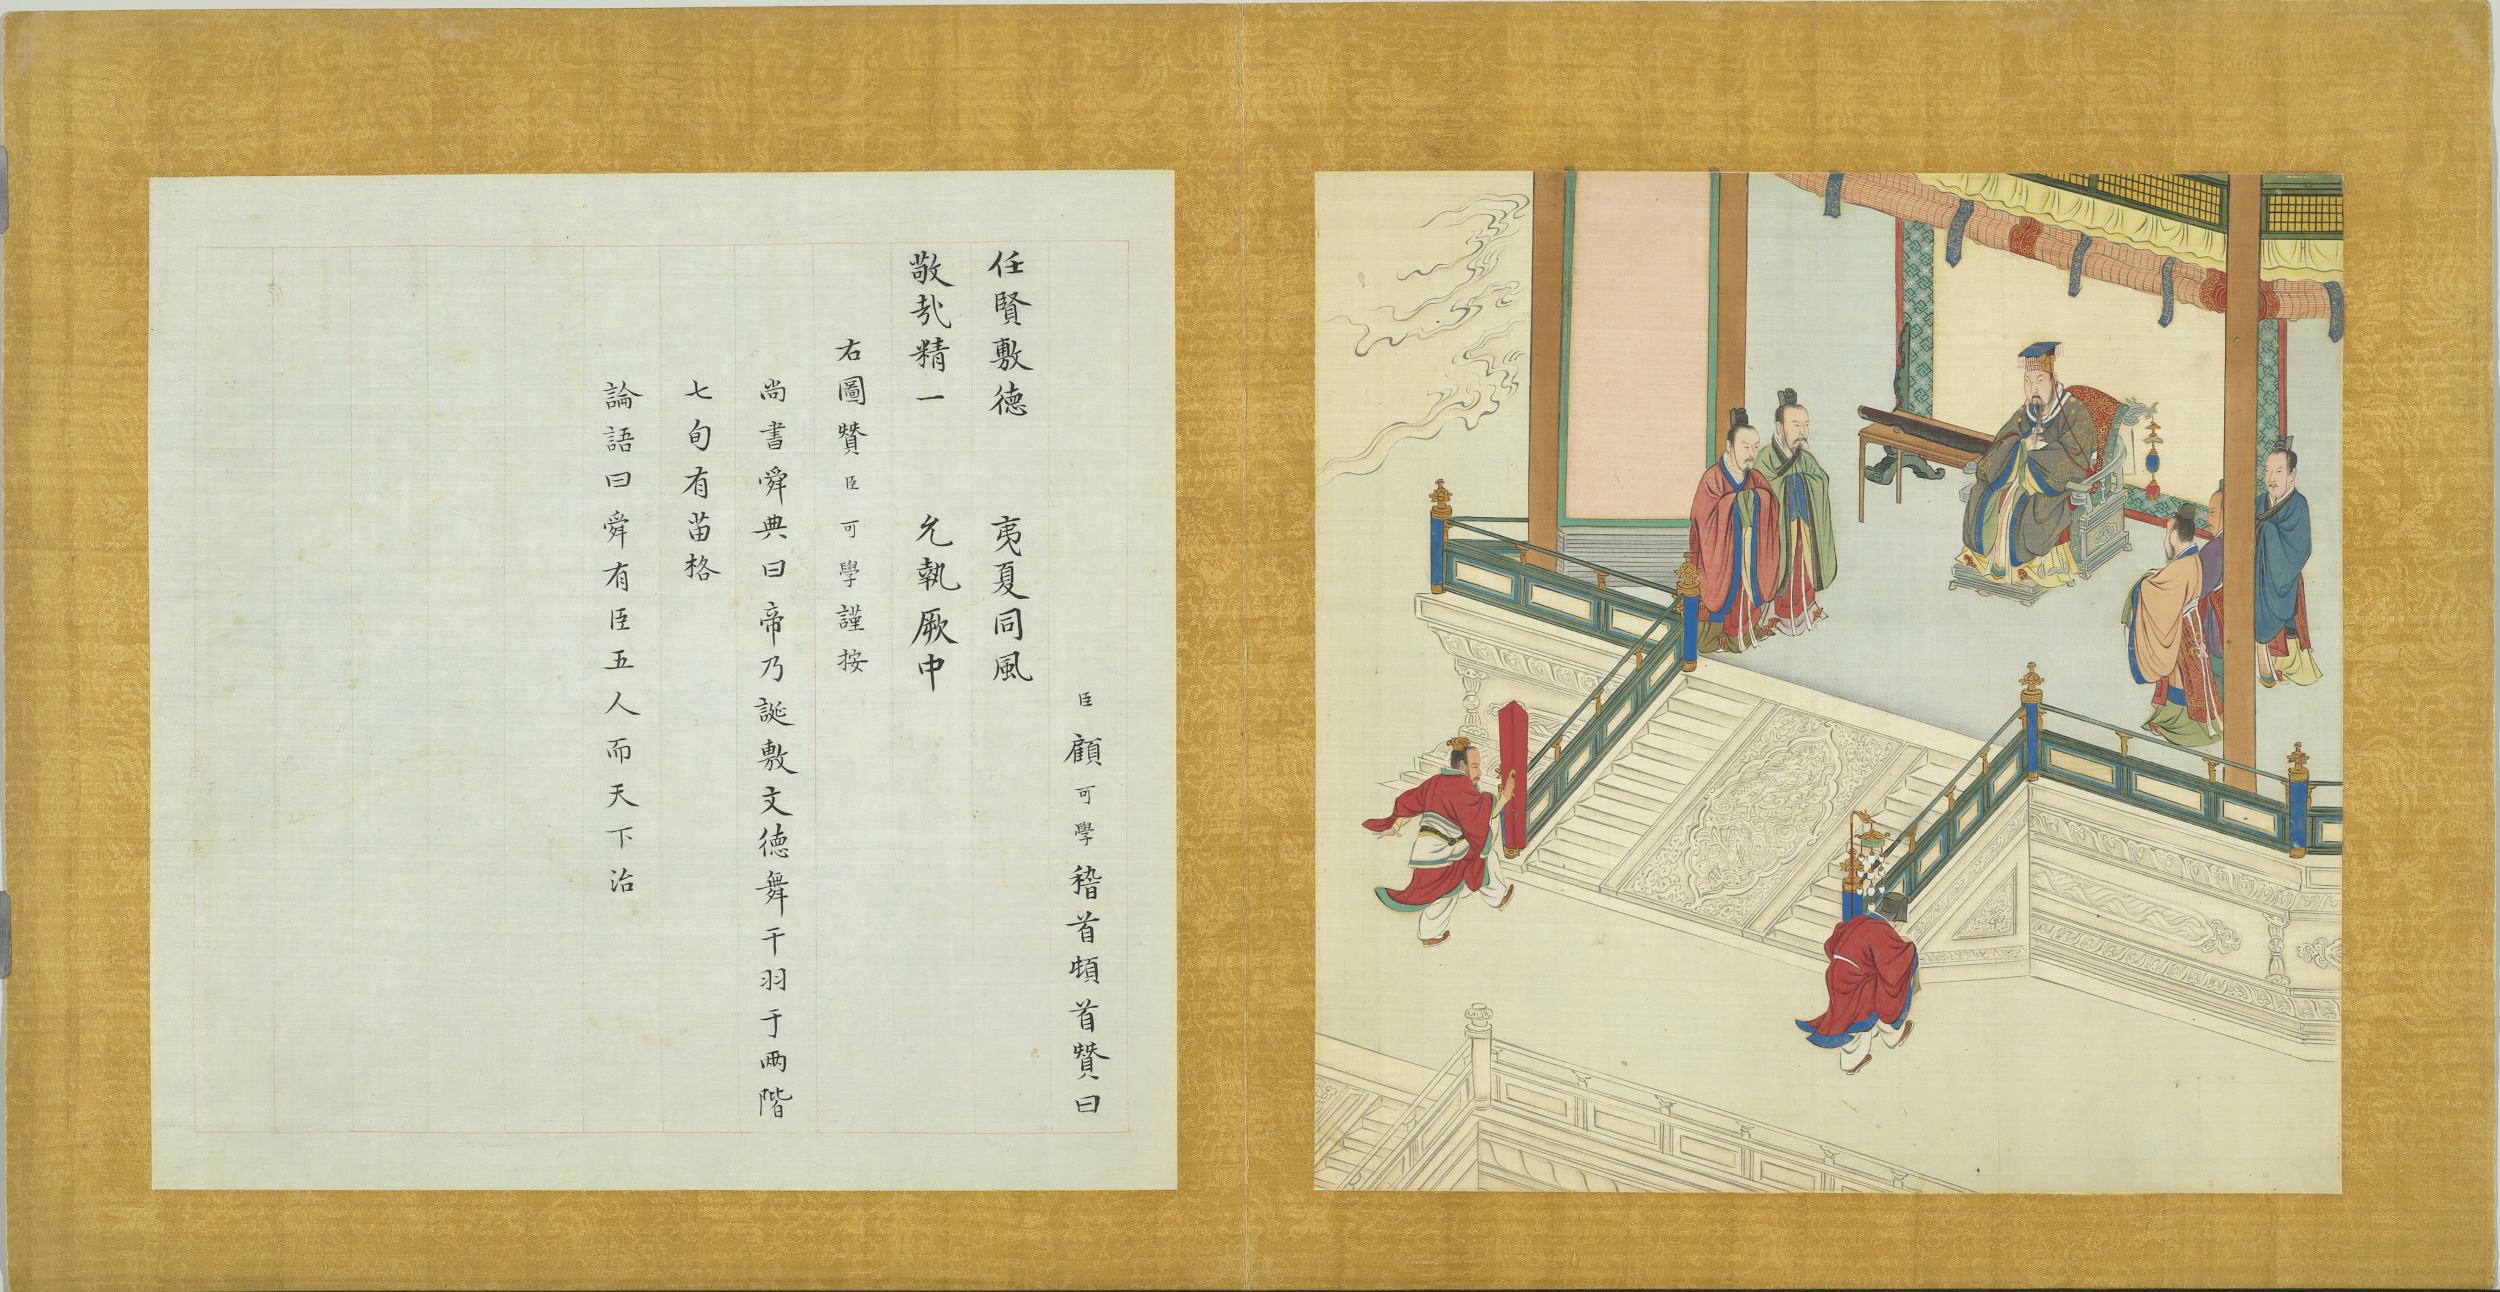 臣顧可學稽首頓首贊曰
任賢敷德　夷夏同風
敬哉精一　允執厥中
右圖贊臣可學謹按
尚書舜典曰帝乃誕敷文德舞干羽于兩階
七旬有苗格
論語曰舜有臣五人而天下治